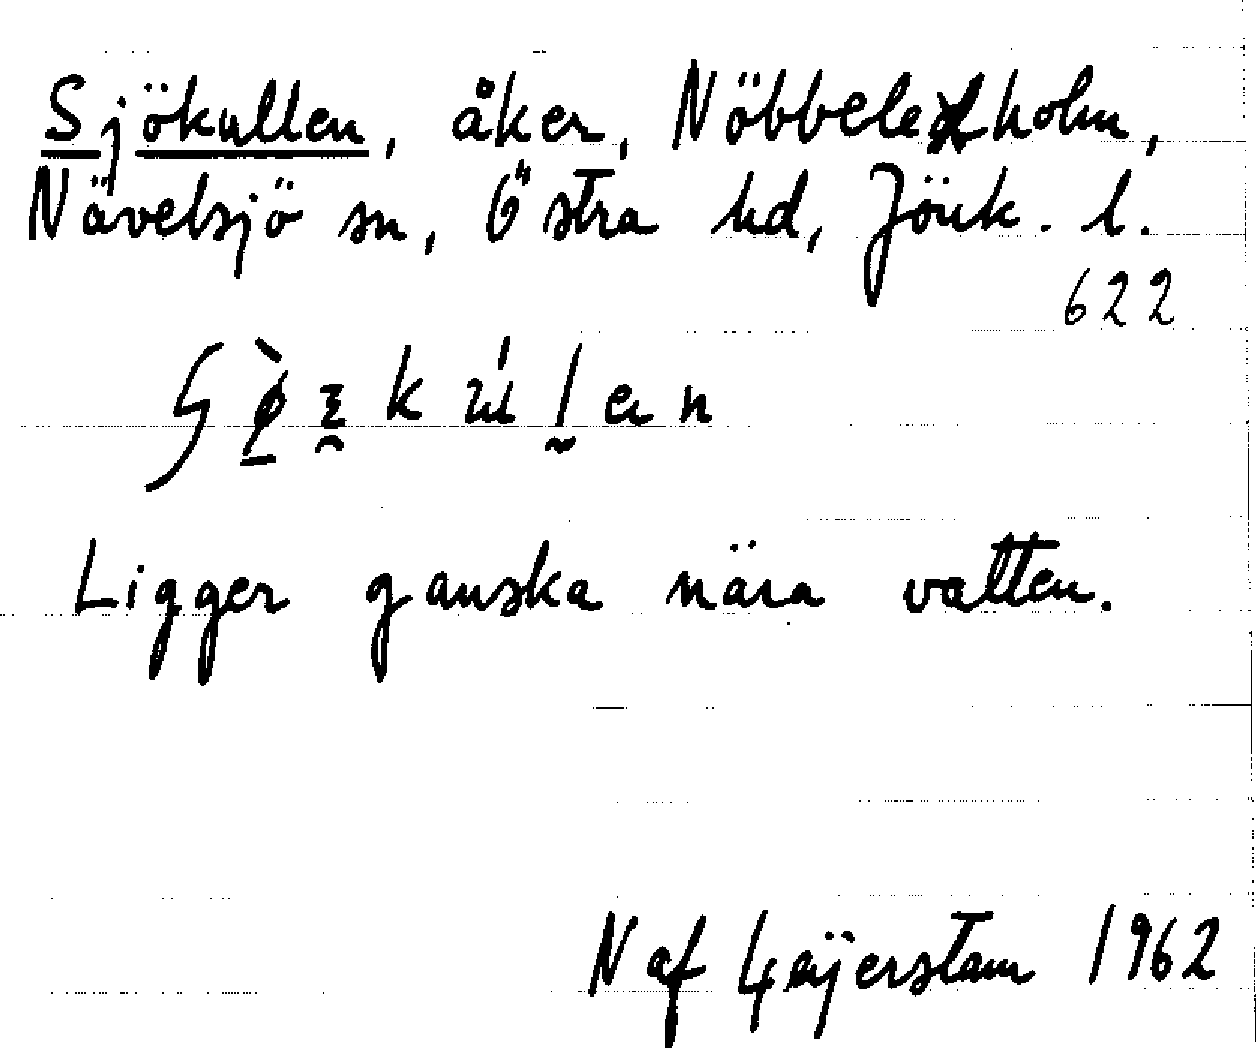 Sjökullen, åker, Nöbbeleholm,
Nävelsjö sn, Östra hd, Jönk. l.
622
Ligger ganska nära vatten.
N af Geijerstam 1962